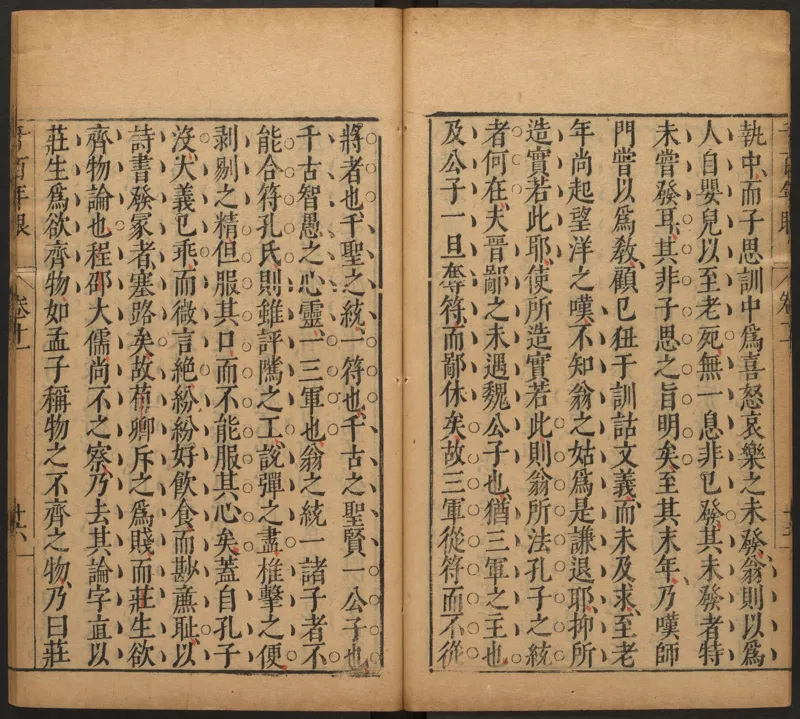 執中而子思訓中爲喜怒哀樂之未發翁則以爲
人自嬰兒以至老死無一息非已發其未發者特
未嘗發耳其非子思之旨明矣至其末年乃嘆師
門嘗以爲敎顧已狃于訓詁文義而未及求至老
年尚起望洋之嘆不知翁之姑爲是謙退耶抑所
造實若此耶使所造實若此則翁所法孔子之統
者何在夫晉鄙之未遇魏公子也猶三軍之主也
及公子一旦奪符而鄙休矣故三軍從符而不從
將者也千聖之統一符也千古之聖賢一公子也
千古智愚之心靈一三軍也翁之統一諸子者不
能合符孔氏則雖評隲之工說彈之盡椎擊之便
剥剔之精但服其口而不能服其心矣蓋自孔子
沒大義已乖而微言絶紛紛好飲食而尠㢘耻以
詩書發冢者塞路矣故荀卿斥之爲賤而莊生欲
齊物論也程邵大儒尚不之察乃去其論字直以
莊生爲欲齊物如孟子稱物之不齊之物乃曰莊
千百年眼
卷十一
廿六